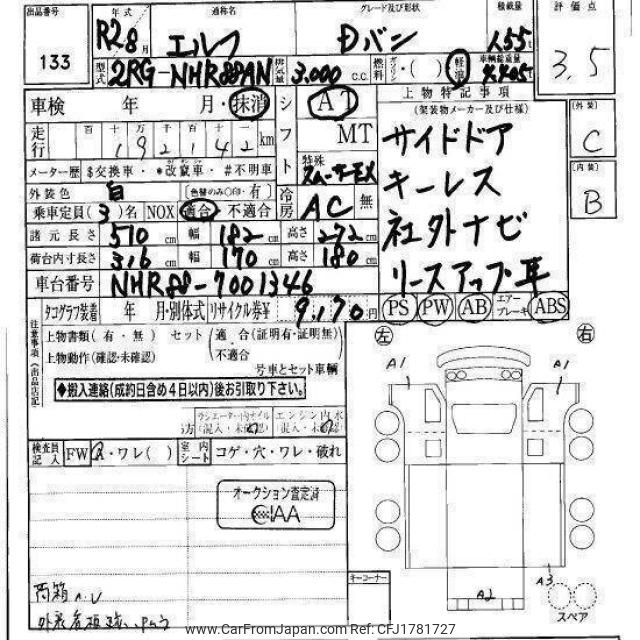 出品番号 年式 通称名 グレード及び形状 積載量 評価点
133 R2 8月 エルフ Dバン 1.55t 3,5
型式 2RG-NHR88AN 排気量 3,000 c.c. 燃料 ガソリン・( ) 軽油 車輌総重量
車検 年 月・抹消 シフト AT 上物特記事項
(架装物メーカー及び仕様) 外装
走行 百 十 万 千 百 十 一 MT サイドドア C
192142 km
メーター歴 $交換車・*改竄車・#不明車 特殊 スムーサーEX キーレス 内装
外装色 白 (色替のみ○印・有) 冷房 AC 無 B
乗車定員(3)名 NOX 適合 不適合 社外ナビ
諸元長さ 510 cm 幅 182 cm 高さ 272 cm
荷台内寸長さ 316 cm 幅 170 cm 高さ 180 cm リースアップ車
車台番号 NHR88-7001346
タコグラフ装着 年 月・別体式 リサイクル券¥ 9,170円 PS PW AB エアーブレーキ ABS
注意事項(出品店記)
上物書類(有・無) セット(適合(証明有・証明無)
上物動作(確認・未確認) 不適合 左 右
号車とセット車輌 A1 A1
◆搬入連絡(成約日含め4日以内)後お引取り下さい。
ラジエーター内オイル エンジン内水
(混入・未確認) (混入・未確認)
検査員記入 FW ・ワレ( ) 室内シート コゲ・穴・ワレ・破れ
オークション査定済
CIAA
キーコーナー A2 A3
荷箱A,U スペア
www.CarFromJapan.com Ref: CFJ1781727